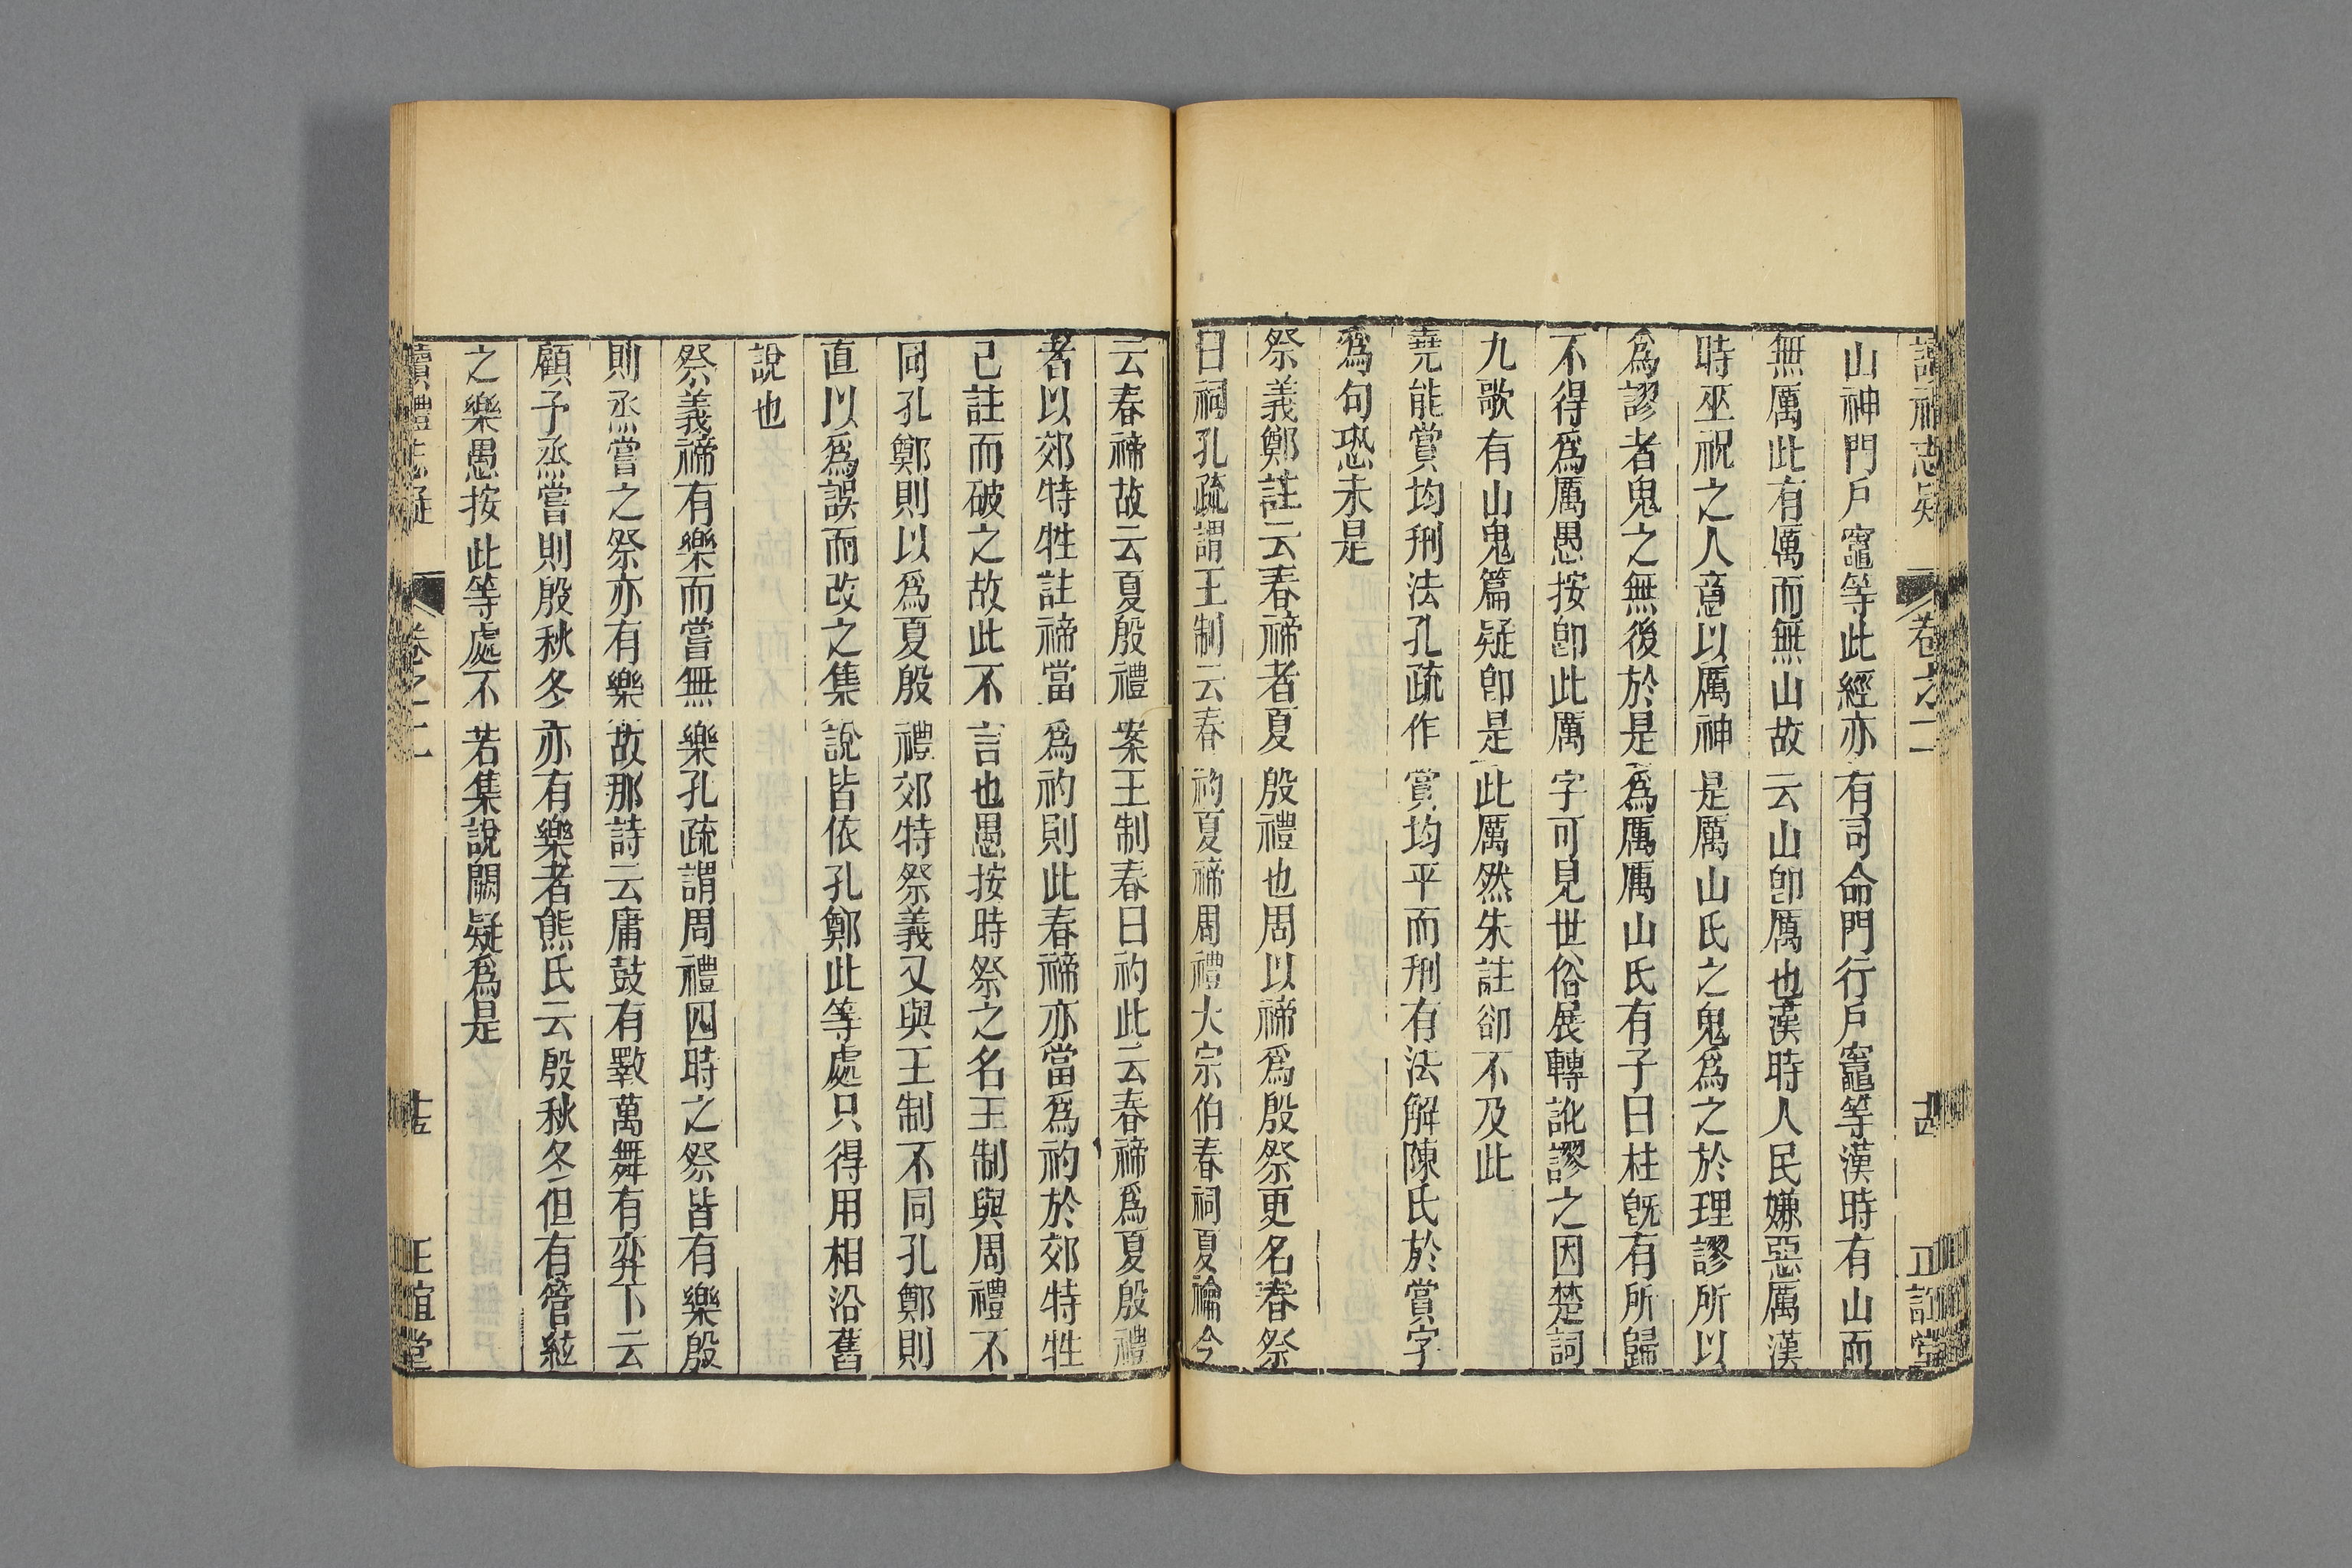 讀禮志疑 卷之二 十四 正誼堂
山神門戶竈等此經亦有司命門行戶竈等漢時有山而
無厲此有厲而無山故云山卽厲也漢時人民嫌惡厲漢
時巫祝之人意以厲神是厲山氏之鬼爲之於理謬所以
爲謬者鬼之無後於是爲厲厲山氏有子曰柱旣有所歸
不得爲厲愚按卽此厲字可見世俗展轉訛謬之因楚詞
九歌有山鬼篇疑卽是此厲然朱註卻不及此
堯能賞均刑法孔疏作賞均平而刑有法解陳氏於賞字
爲句恐未是
祭義鄭註云春禘者夏殷禮也周以禘爲殷祭更名春祭
曰祠孔疏謂王制云春礿夏禘周禮大宗伯春祠夏禴今
云春禘故云夏殷禮案王制春曰礿此云春禘爲夏殷禮
者以郊特牲註禘當爲礿則此春禘亦當爲礿於郊特牲
已註而破之故此不言也愚按時祭之名王制與周禮不
同孔鄭則以爲夏殷禮郊特祭義又與王制不同孔鄭則
直以爲誤而改之集說皆依孔鄭此等處只得用相沿舊
說也
祭義禘有樂而嘗無樂孔疏謂周禮四時之祭皆有樂殷
則烝嘗之祭亦有樂故那詩云庸鼓有斁萬舞有奕下云
顧予烝嘗則殷秋冬亦有樂者熊氏云殷秋冬但有管絃
之樂愚按此等處不若集說闕疑爲是
讀禮志疑 卷之二 十五 正誼堂